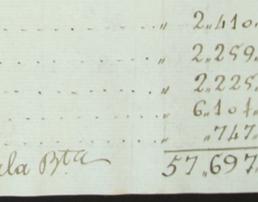 „ 2„410„
„ 2„259„
„ 2„225„
„ 6„101„
„ „747„
ala Bta 57„697„